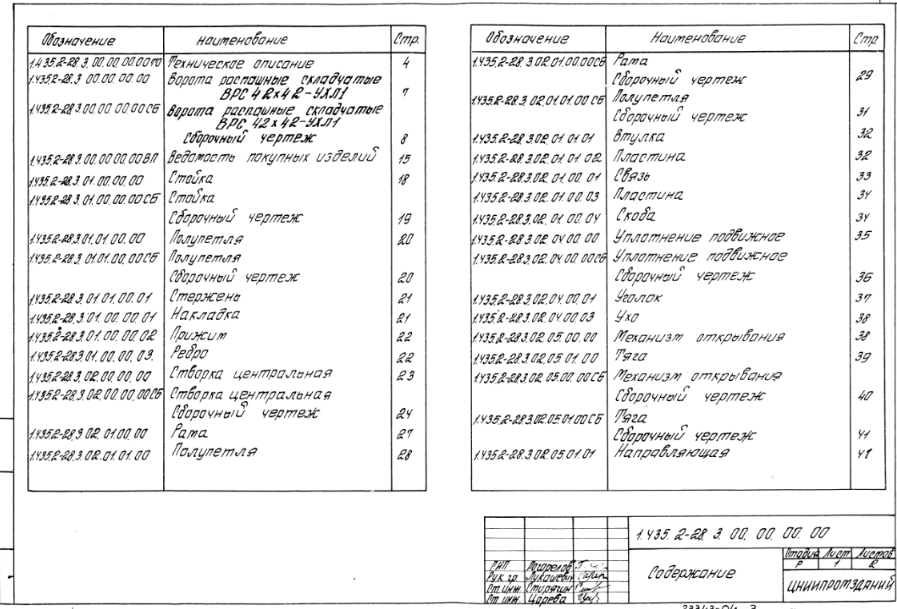 Обозначение Наименование Стр.
1.435.2-28.3.00.00.00.00ТО Техническое описание 4
1.435.2-28.3.00.00.00.00 Ворота распашные складчатые
ВРС 42х42-УХЛ1 7
1.435.2-28.3.00.00.00.00СБ Ворота распашные складчатые
ВРС 42х42-УХЛ1
Сборочный чертеж 8
1.435.2-28.3.00.00.00.00ВП Ведомость покупных изделий 15
1.435.2-28.3.01.00.00.00 Стойка 18
1.435.2-28.3.01.00.00.00СБ Стойка
Сборочный чертеж 19
1.435.2-28.3.01.01.00.00 Полупетля 20
1.435.2-28.3.01.01.00.00СБ Полупетля
Сборочный чертеж 20
1.435.2-28.3.01.01.00.01 Стержень 21
1.435.2-28.3.01.00.00.01 Накладка 21
1.435.2-28.3.01.00.00.02 Прижим 22
1.435.2-28.3.01.00.00.03. Ребро 22
1.435.2-28.3.02.00.00.00 Створка центральная 23
1.435.2-28.3.02.00.00.00СБ Створка центральная
Сборочный чертеж 24
1.435.2-28.3.02.01.00.00 Рама 27
1.435.2-28.3.02.01.01.00 Полупетля 28
Обозначение Наименование Стр.
1.435.2-28.3.02.01.00.00СБ Рама
Сборочный чертеж 29
1.435.2-28.3.02.01.01.00СБ Полупетля
Сборочный чертеж 31
1.435.2-28.3.02.01.01.01 Втулка 32
1.435.2-28.3.02.01.01.02 Пластина 32
1.435.2-28.3.02.01.00.01 Связь 33
1.435.2-28.3.02.01.00.03 Пластина 34
1.435.2-28.3.02.01.00.04 Скоба 34
1.435.2-28.3.02.04.00.00 Уплотнение подвижное 35
1.435.2-28.3.02.04.00.00СБ Уплотнение подвижное
Сборочный чертеж 36
1.435.2-28.3.02.04.00.01 Уголок 37
1.435.2-28.3.02.04.00.03 Ухо 38
1.435.2-28.3.02.05.00.00 Механизм открывания 38
1.435.2-28.3.02.05.01.00 Тяга 39
1.435.2-28.3.02.05.00.00СБ Механизм открывания
Сборочный чертеж 40
1.435.2-28.3.02.05.01.00СБ Тяга
Сборочный чертеж 41
1.435.2-28.3.02.05.01.01 Направляющая 41
1.435.2-28.3.00.00.00.00
Содержание
Стадия Лист Листов
Р 1 2
ЦНИИПРОМЗДАНИЙ
ГИП Погорелов
Рук.гр. Лукашевич
Ст.инж.
Ст.инж. Царева